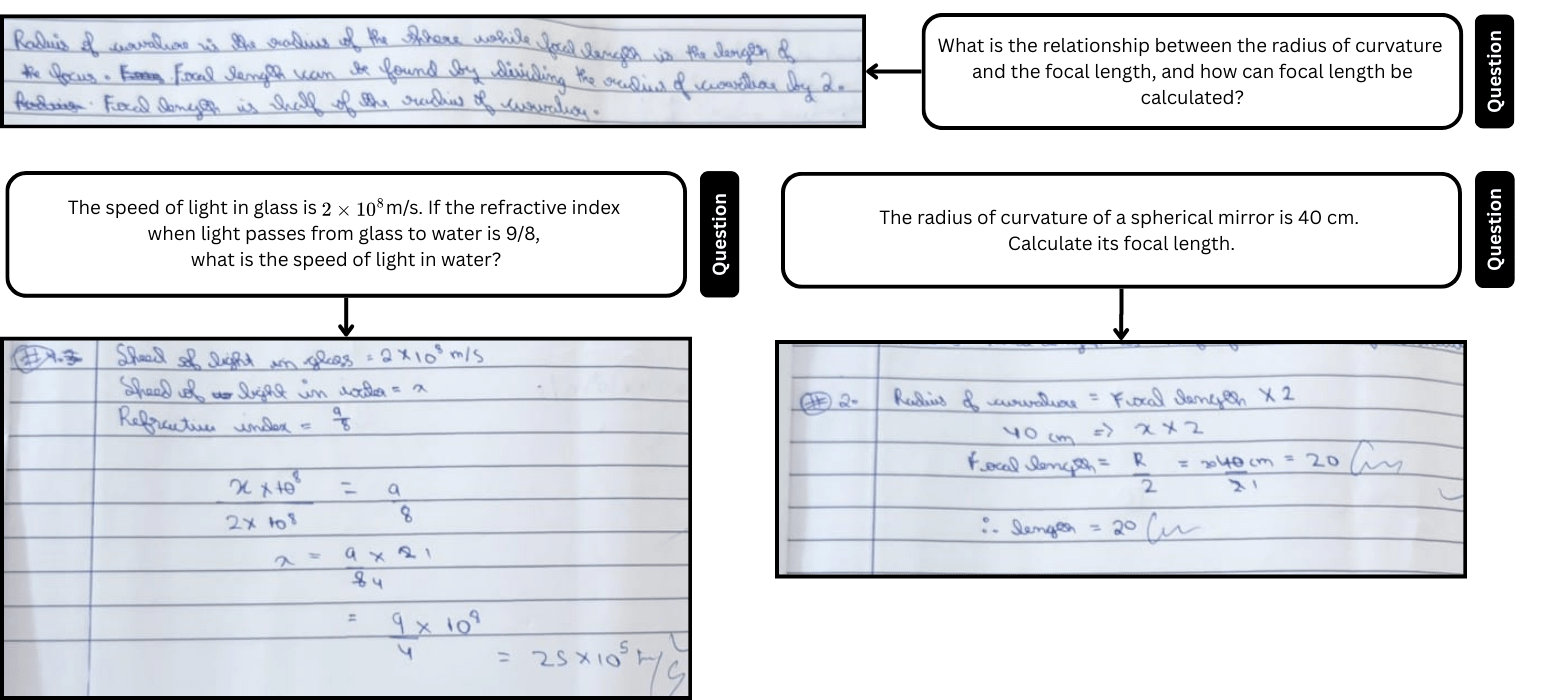 Radius of curvature is the radius of the sphere while focal length is the length of
the focus. Focal length can be found by dividing the radius of curvature by 2.
Focal length is half of the radius of curvature.
What is the relationship between the radius of curvature
and the focal length, and how can focal length be
calculated?
Question
The speed of light in glass is 2 × 10⁸ m/s. If the refractive index
when light passes from glass to water is 9/8,
what is the speed of light in water?
Question
The radius of curvature of a spherical mirror is 40 cm.
Calculate its focal length.
Question
Speed of light in glass = 2 × 10⁸ m/s
Speed of light in water = x
Refractive index = 9/8
x × 10⁸ / 2 × 10⁸ = 9/8
x = 9 × 2 1 / 8 4
= 9/4 × 10⁸
= 25 × 10⁵ M/S
# 2. Radius of curvature = Focal length × 2
40 cm => x × 2
Focal length = R/2 = 40 cm / 2 1 = 20 Cm
∴ length = 20 Cm